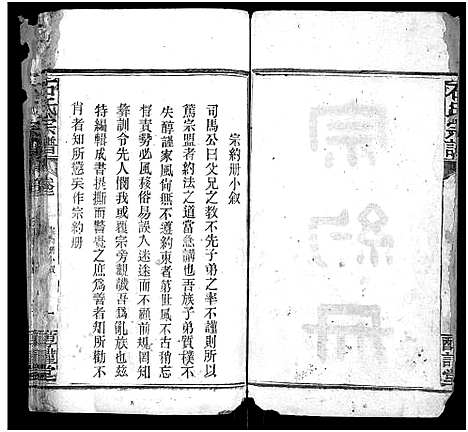 石氏宗譜
宗約冊
宗約冊小叙
司馬公曰父兄之教不先子弟之率不謹則所以
篤宗盟者約法之道當急講也吾族子弟質樸不
失醇謹家風尚無不遵約束者第世風不古稍忘
督責勢必風移俗易誤入迷途而不顧前規罔知
彝訓令先人憫我或覆宗旁觀譏吾為亂族也爰
特編輯成書提撕而警覺之庶為善者知所勸不
肖者知所懲矣作宗約冊
石氏宗譜